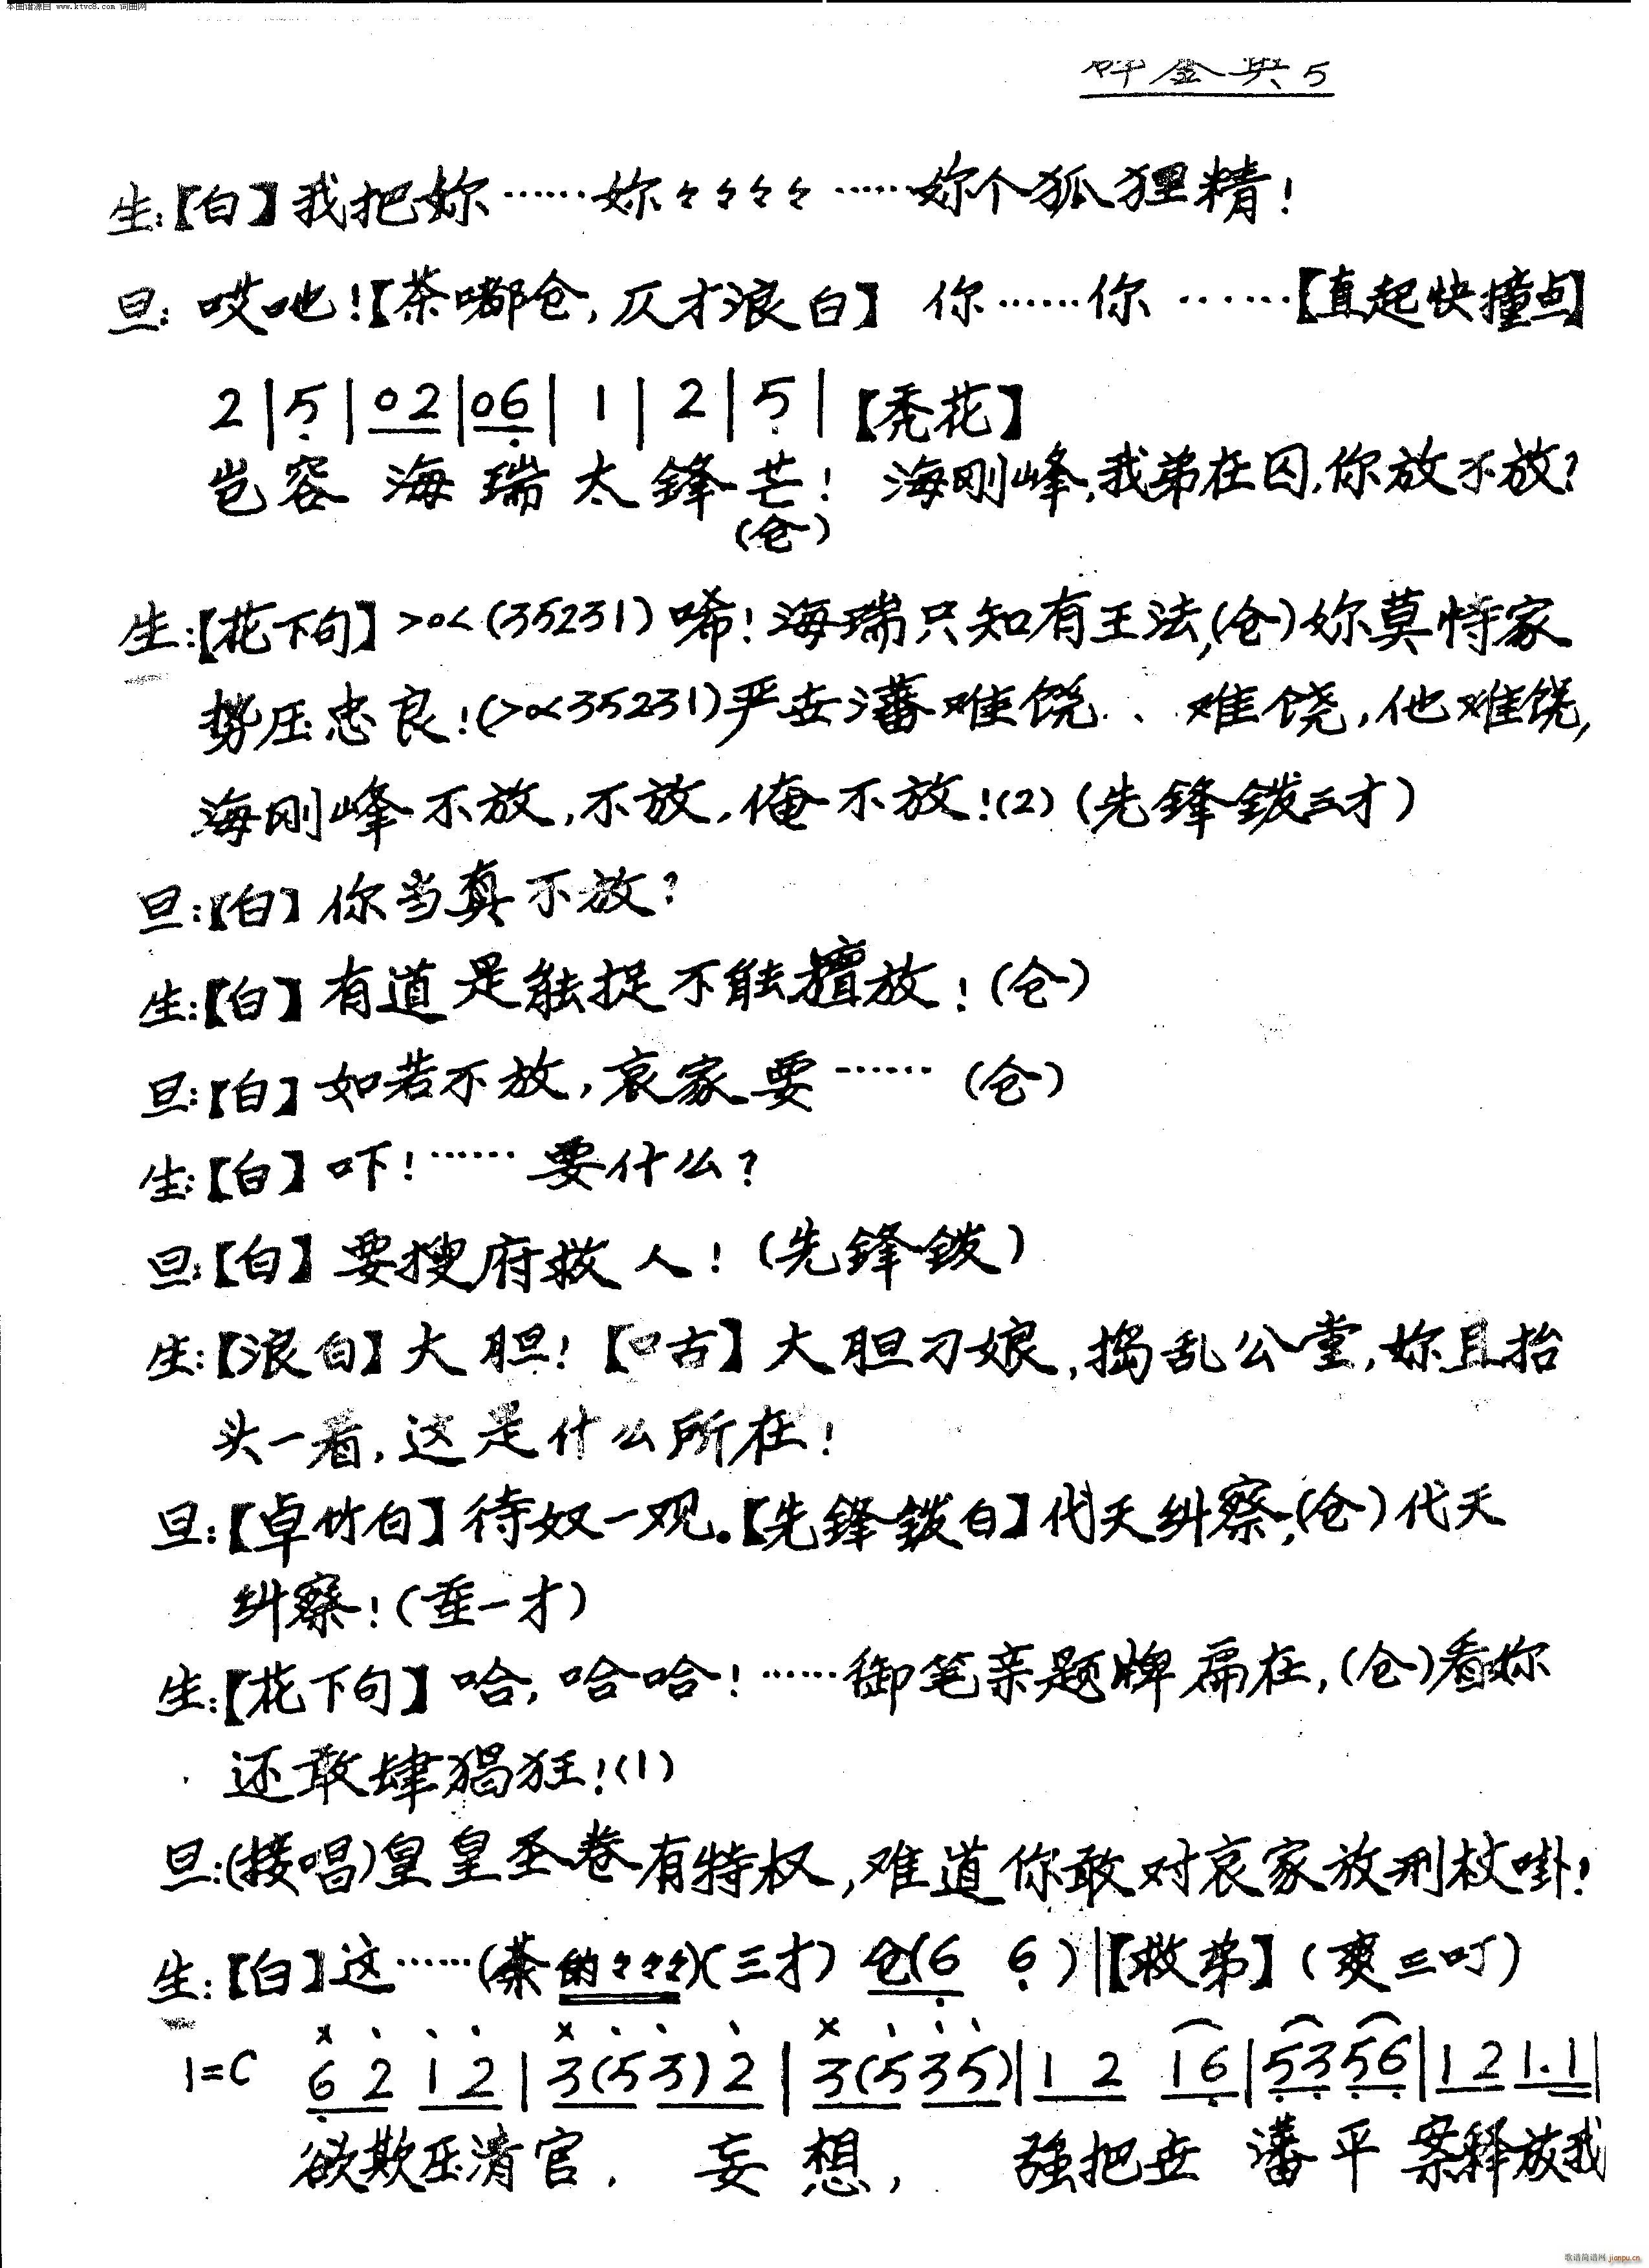 本曲谱源自 www.ktvc8.com 词曲网
碎金典5
生:【白】我把妳……妳々々々々……妳个狐狸精!
旦: 哎吔!【茶嘟仓,仄才浪白】 你……你 ……【直起快撞点】
2|5|02|06|1|2|5|【秃花】
岂容 海瑞太鋒芒! 海刚峰,我弟在囚,你放不放?
(仓)
生:【花下句】>o<(35231)唏!海瑞只知有王法,(仓)妳莫恃家
势压忠良!(>o<35231)严世潘难饶、难饶,他难饶,
海刚峰不放,不放,俺不放!(2)(先鋒钹三才)
旦:【白】你当真不放?
生:【白】有道是能捉不能擅放!(仓)
旦:【白】如若不放,哀家要……(仓)
生:【白】吓!……要什么?
旦:【白】要搜府救人!(先鋒钹)
生:【浪白】大胆!【口古】大胆刁娘,捣乱公堂,妳且抬
头一看,这是什么所在!
旦:【卓竹白】待奴一观。【先鋒钹白】代天纠察,(仓)代天
纠察!(重一才)
生:【花下句】哈,哈哈!……御笔亲题牌扁在,(仓)看妳
还敢肆猖狂!(1)
旦:(接唱)皇皇圣卷有特权,难道你敢对哀家放刑杖啩!
生:【白】这……(茶的々々々)(三才) 仓(6 6)|【救弟】(爽二叮)
1=C 6 2 1 2|3(5 3)2|3(5 3 5)|1 2 1 6|5 3 5 6|1 2 1.1|
欲欺压清官. 妄想, 强把世 潘平 案释放我
歌谱简谱网 jianpu.cn